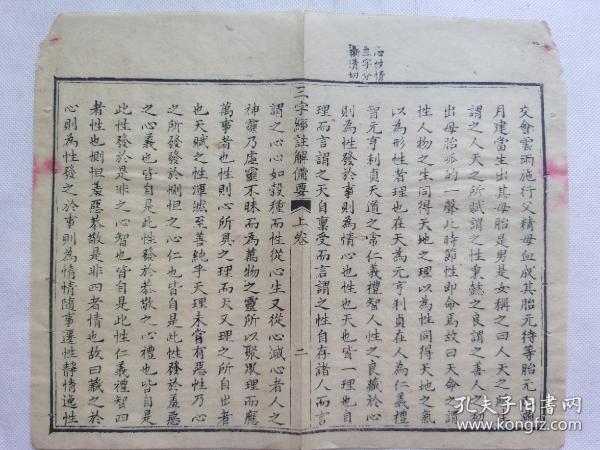 心性情
三字分
晰清切
交會雲雨施行父精母血成其胎元待等胎元
月建當生出其母胎是男是女稱之曰人天之所生
謂之人天之所賦謂之性秉懿之良謂之善人之初
出母胎哌的一聲此時節性即命焉故曰天命之謂
性人物之生同得天地之理以為性同得天地之氣
以為形性者理也在天為元亨利貞在人為仁義禮
智元亨利貞天道之常仁義禮智人性之良藏於心
則為性發於事則為情心也性也天也皆一理也自
理而言謂之天自稟受而言謂之性自存諸人而言
三字經註解備要 上卷 二
謂之心心如穀種而性從心生又從心滅心者人之
神靈乃虛靈不昧而為萬物之靈所以聚眾理而應
萬事者也性則心所具之理而天又理之所自出者
也天賦之性渾然至善純乎天理未嘗有惡性乃心
之所發發於惻怛之心仁也皆自是此性發於羞惡
之心義也皆自是此性發於恭敬之心禮也皆自是
此性發於是非之心智也皆自是此性仁義禮智四
者性也惻怛羞惡恭敬是非四者情也故曰藏之於
心則為性發之於事則為情情隨事遷性靜情逸性
孔夫子旧书网
www.kongfz.com